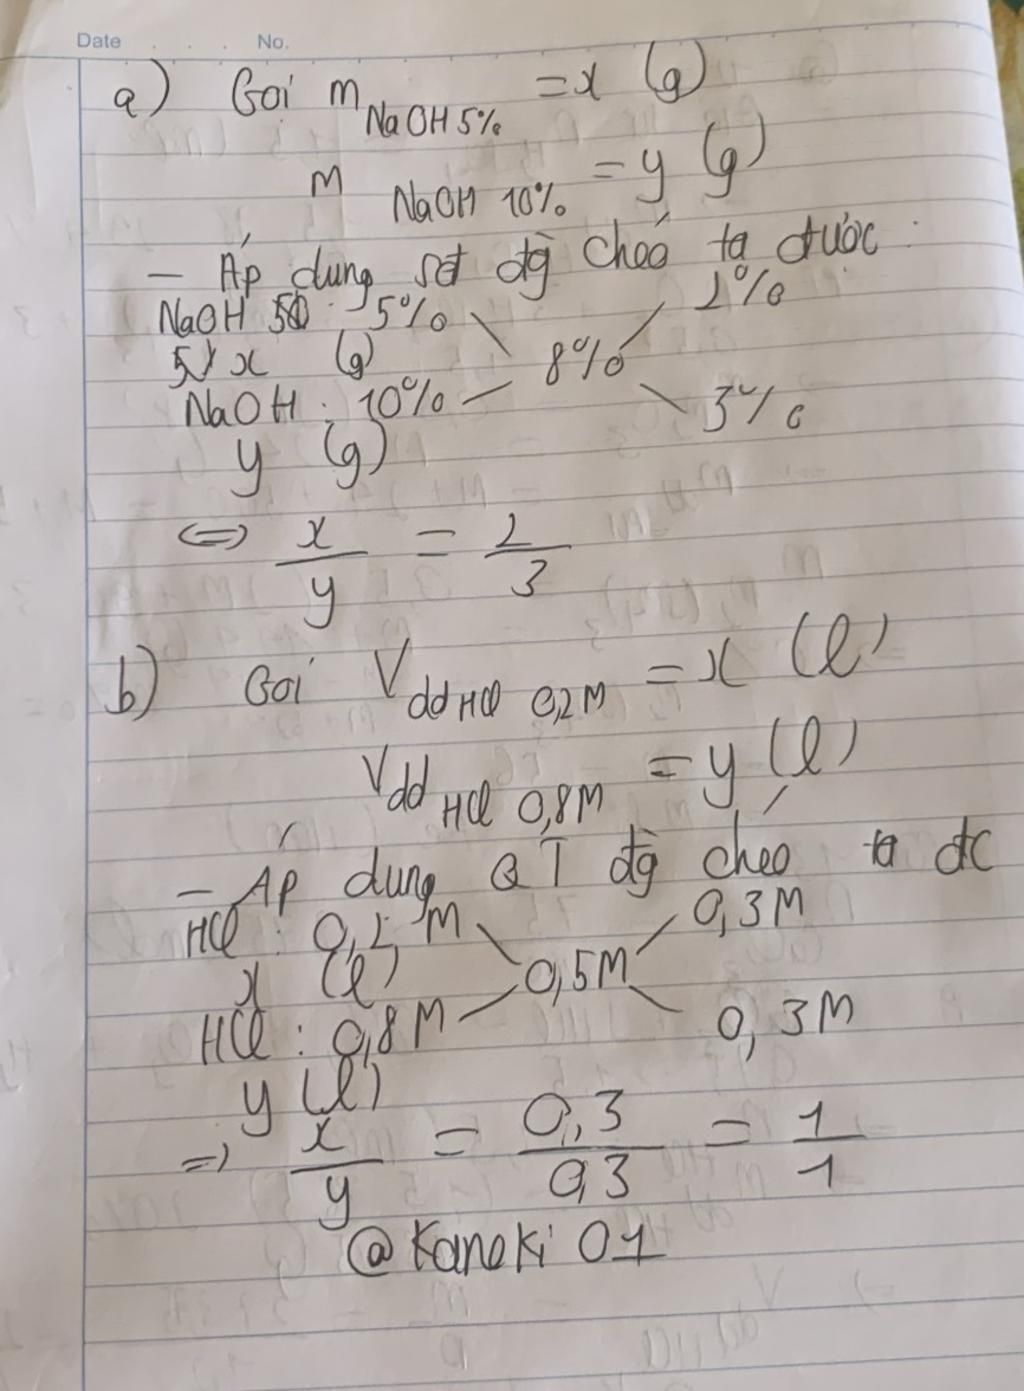 Date . . . No.
a) Gọi m NaOH 5% = x (g)
m NaOH 10% = y (g)
- Áp dụng sơ đg chéo ta được :
NaOH 5% : 5% 2%
x (g) 8%
NaOH : 10% 3%
y (g)
<=> x/y = 2/3
b) Gọi V dd HCl 0,2M = x (l)
V dd HCl 0,8M = y (l)
- Áp dụng QT đg chéo ta đc
HCl : 0,2 M 0,3M
x (l) 0,5M
HCl : 0,8M 0,3M
y (l)
=> x/y = 0,3/0,3 = 1/1
@Kaneki 01